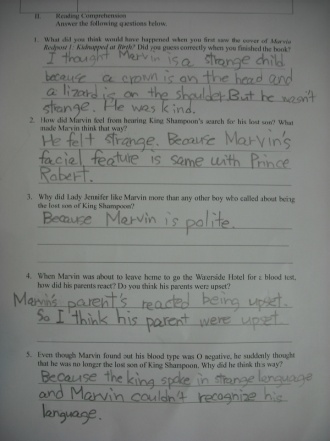 II. Reading Comprehension
Answer the following questions below.
1. What did you think would have happened when you first saw the cover of Marvin
Redpost 1: Kidnapped at Birth? Did you guess correctly when you finished the book?
I thought Marvin is a strange child
because a crown is on the head and
a lizard is on the shoulder. But he wasn't
strange. He was kind.
2. How did Marvin feel from hearing King Shampoon's search for his lost son? What
made Marvin think that way?
He felt strange. Because Marvin's
facial feature is same with Prince
Robert.
3. Why did Lady Jennifer like Marvin more than any other boy who called about being
the lost son of King Shampoon?
Because Marvin is polite.
4. When Marvin was about to leave home to go the Watergate Hotel for a blood test,
how did his parents react? Do you think his parents were upset?
Marvin's parent's reacted being upset.
So I think his parent were upset
5. Even though Marvin found out his blood type was O negative, he suddenly thought
that he was no longer the lost son of King Shampoon. Why did he think this way?
Because the king spoke in strange language
and Marvin couldn't recognize his
language.